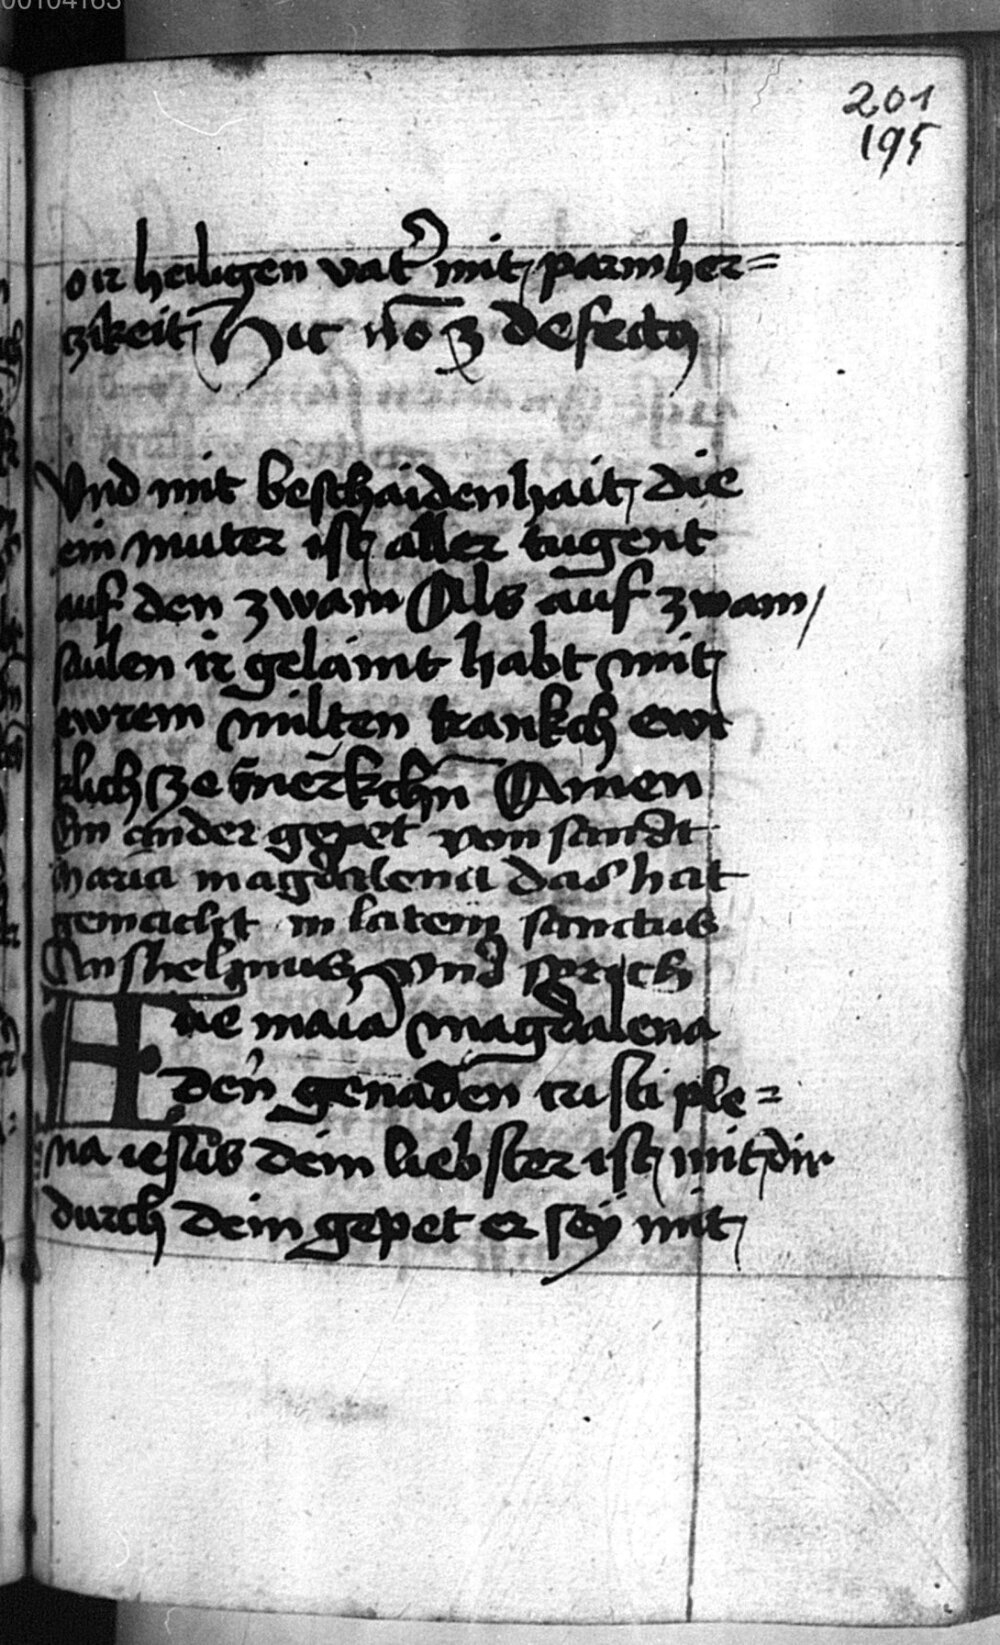 00104163
201
195
o ir heiligen vat' mit parmher=
czikeit Hic nō ꝫ defectꝯ
Vnd mit beschaidenhait die
ein muter ist aller tugent
auf den zwain Als auf zwain
saulen ir gelaint habt mit
ewrem milten trankch ewr
Ein ander gepet von sandt
maria magdalena das hat
gemacht in latein sanctus
Anshelmus vnd sprich
Aue maīa magdalena
den genaden cristi ple=
na iesus dein liebster ist mit dir
durch dein gepet er sey mit